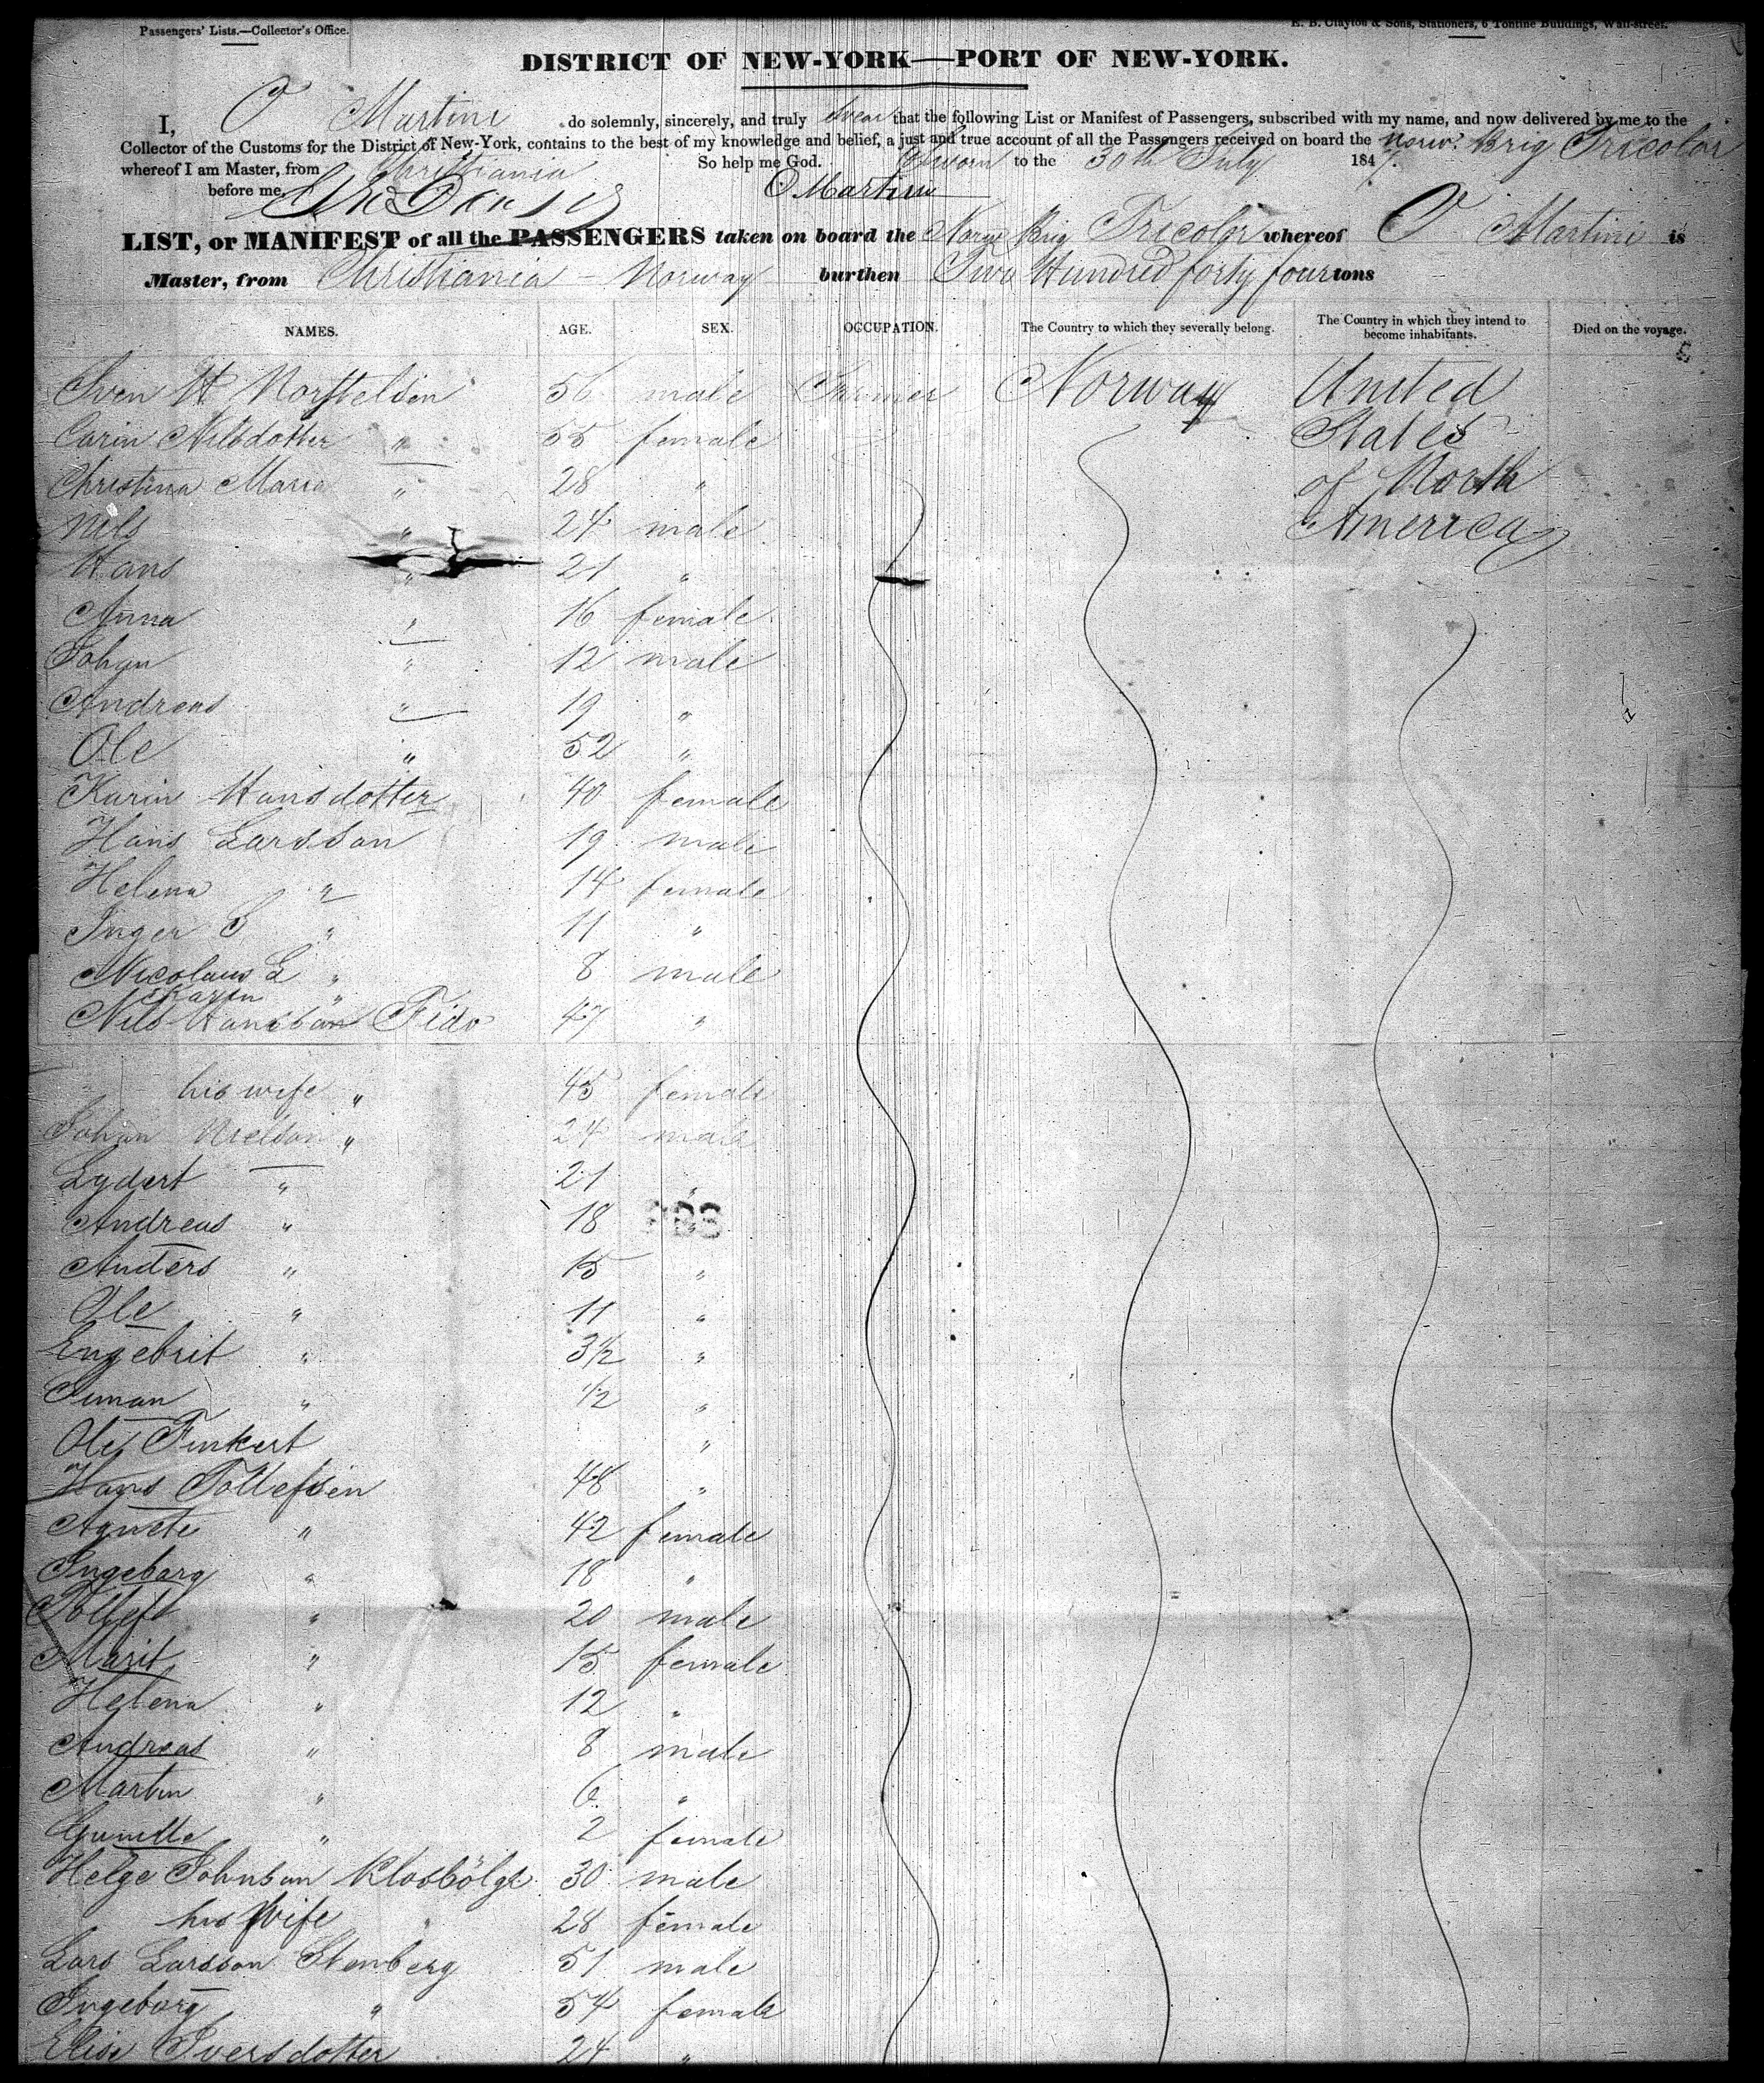 Passengers' Lists.—Collector's Office.
E. B. Clayton & Sons, Stationers, 6 Tontine Buildings, Wall-street.
DISTRICT OF NEW-YORK—PORT OF NEW-YORK.
I, O Martini do solemnly, sincerely, and truly swear that the following List or Manifest of Passengers, subscribed with my name, and now delivered by me to the
Collector of the Customs for the District of New-York, contains to the best of my knowledge and belief, a just and true account of all the Passengers received on board the Norw. Brig Tricolor
whereof I am Master, from Christiania So help me God. Sworn to the 30th July 1847.
before me, O Martini
LIST, or MANIFEST of all the PASSENGERS taken on board the Norw Brig Tricolor whereof O Martini is
Master, from Christiania - Norway burthen Two Hundred forty four tons
NAMES. AGE. SEX. OCCUPATION. The Country to which they severally belong. The Country in which they intend to become inhabitants. Died on the voyage.
Sven H 56 male Farmer Norway United
Carin Nilsdotter " 55 female States
Christina Maria " 28 " of North
Nils " 24 male America
Hans " 21 "
Anna " 16 female
Johan " 12 male
Andreas " 19 "
Ole " 52 "
Karin Hansdotter 40 female
Hans Larsson 19 male
Helena " 14 female
Inger S " 11 "
Nicolaus L " 8 male
Karin "
Nils Hansson Fido 47 "
" his wife " 45 female
Johan Nielson " 24 male
Lydert " 21 "
Andreas " 18 "
Anders " 15 "
Ole " 11 "
Engebrit " 3½ "
Siman " ½ "
Ole Finkert "
Hans Tollefsen 48 "
Agnete " 42 female
Ingeborg " 18 "
Tollef " 20 male
Marit " 15 female
Helena " 12 "
Andreas " 8 male
Martin " 6 "
Gunilla " 2 female
Helge Johnson Klosbölge 30 male
his Wife " 28 female
Lars Larsson Stenberg 51 male
Ingeborg " 54 female
Elise Iversdotter 24 "